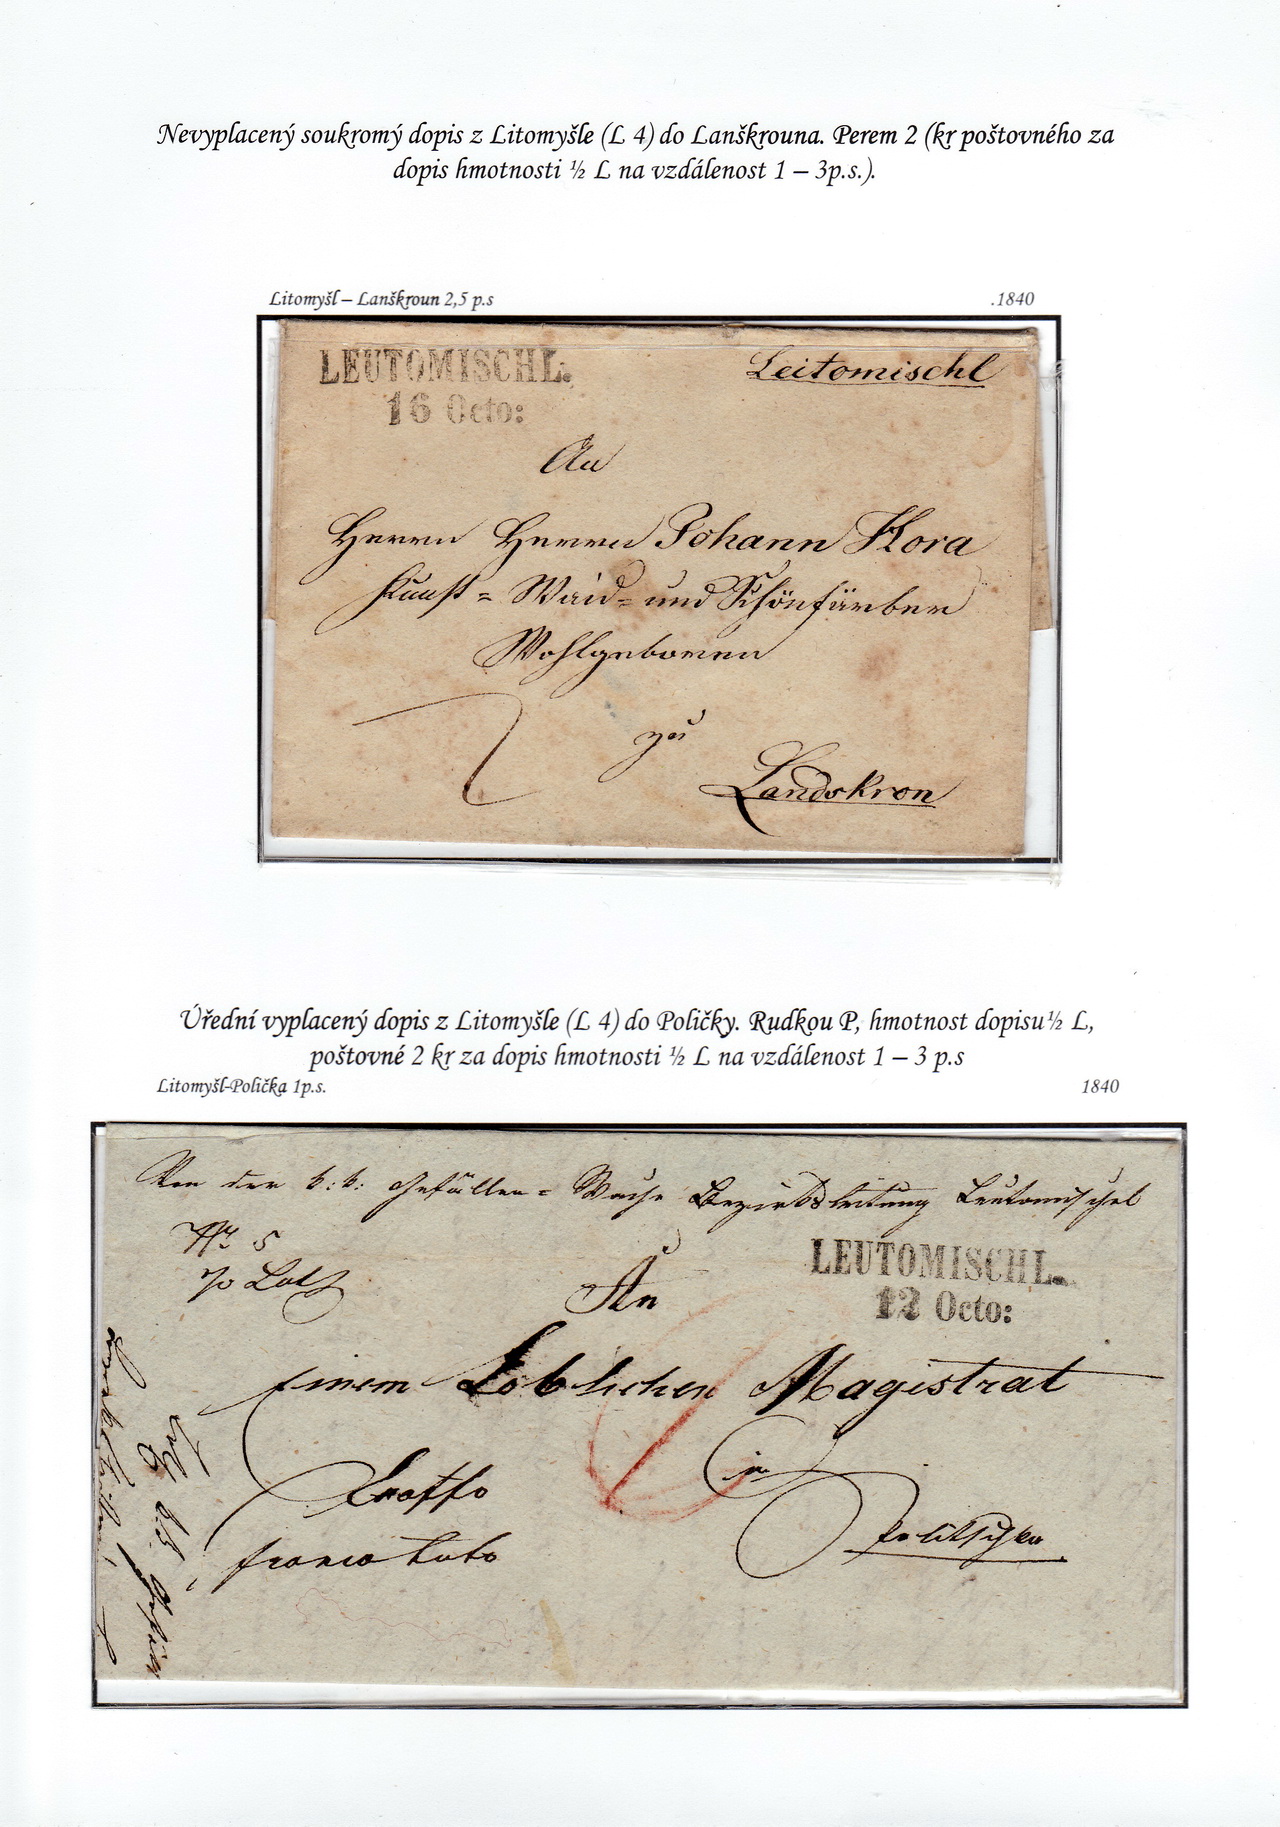 Nevyplacený soukromý dopis z Litomyšle (L 4) do Lanškrouna. Perem 2 (kr poštovného za
dopis hmotnosti ½ L na vzdálenost 1 – 3p.s.).
Litomyšl – Lanškroun 2,5 p.s
.1840
LEUTOMISCHL.
16 Octo:
Leitomischl
An
Herrn Herrn Johann Kora
Kunst = Waid= und Schönfärber
Wohlgeboren
2
zu
Landskron
Úřední vyplacený dopis z Litomyšle (L 4) do Poličky. Rudkou P, hmotnost dopisu½ L,
poštovné 2 kr za dopis hmotnosti ½ L na vzdálenost 1 – 3 p.s
Litomyšl-Polička 1p.s.
1840
Von der k: k: Gefällen= Wache Bezirksleitung Leutomischel
No 5
LEUTOMISCHL.
12 Octo:
Loth
An
Einem Löblichen Magistrat
in
Politschka
franco